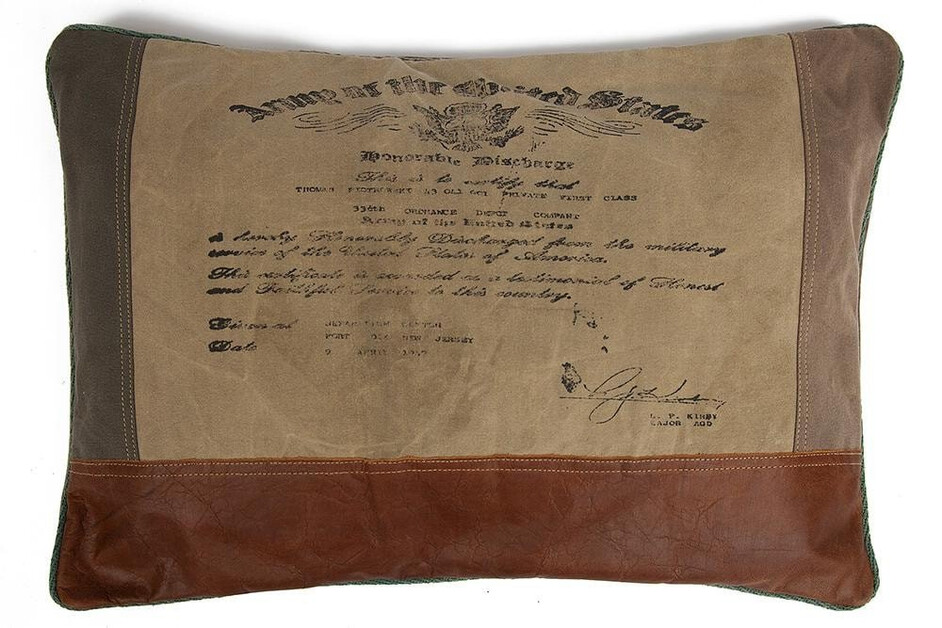 Army of the United States
Honorable Discharge
This is to certify that
THOMAS PIOTROWSKI 43 041 001 PRIVATE FIRST CLASS
334th ORDNANCE DEPOT COMPANY
Army of the United States
is hereby Honorably Discharged from the military
service of the United States of America.
This certificate is awarded as a testimonial of Honest
and Faithful Service to this country.
Given at SEPARATION CENTER
FORT DIX NEW JERSEY
Date 2 APRIL
L. P. KIRBY
MAJOR AGD